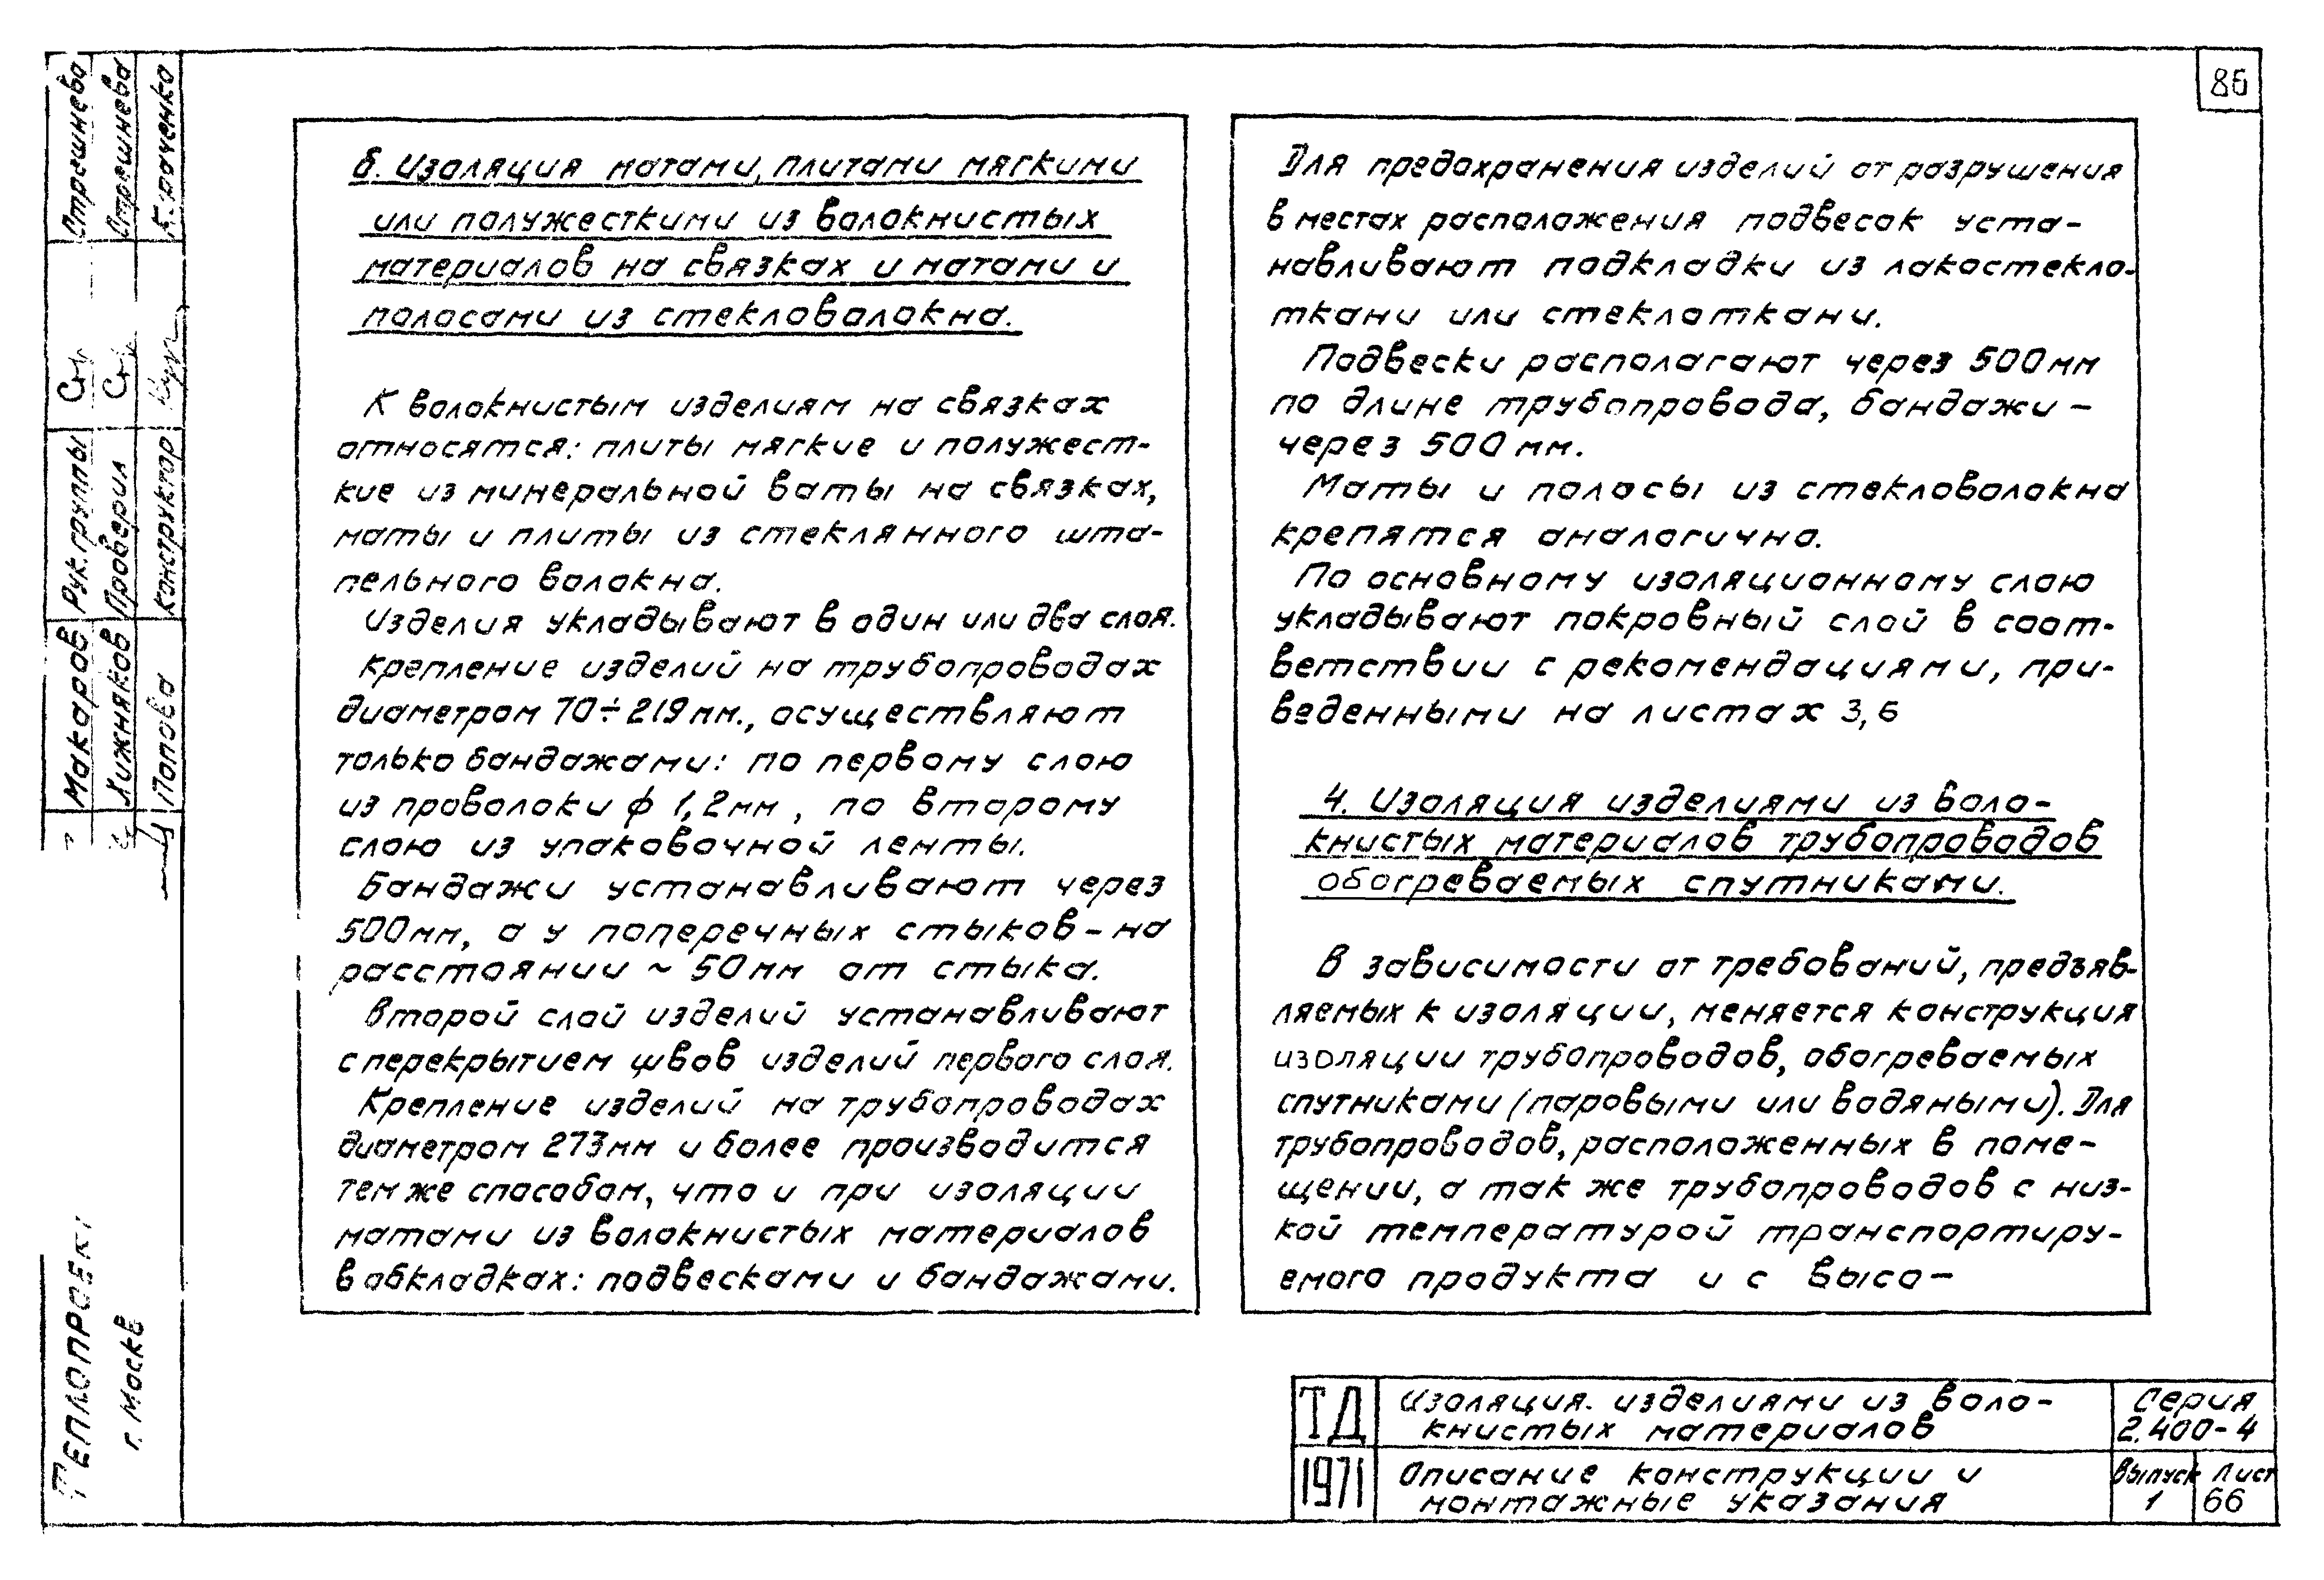 86
б. Изоляция матами, плитами мягкими
или полужесткими из волокнистых
материалов на связках и матами и
полосами из стекловолокна.
К волокнистым изделиям на связках
относятся: плиты мягкие и полужест-
кие из минеральной ваты на связках,
маты и плиты из стеклянного шта-
пельного волокна.
Изделия укладывают в один или два слоя.
Крепление изделий на трубопроводах
диаметром 70÷219мм., осуществляют
только бандажами: по первому слою
из проволоки ф 1,2мм, по второму
слою из упаковочной ленты.
Бандажи устанавливают через
500мм, а у поперечных стыков - на
расстоянии ~ 50мм от стыка.
Второй слой изделий устанавливают
с перекрытием швов изделий первого слоя.
Крепление изделий на трубопроводах
диаметром 273мм и более производится
тем же способом, что и при изоляции
матами из волокнистых материалов
в обкладках: подвесками и бандажами.
Для предохранения изделий от разрушения
в местах расположения подвесок уста-
навливают подкладки из лакостекло-
ткани или стеклоткани.
Подвески располагают через 500мм
по длине трубопровода, бандажи -
через 500мм.
Маты и полосы из стекловолокна
крепятся аналогично.
По основному изоляционному слою
укладывают покровный слой в соот-
ветствии с рекомендациями, при-
веденными на листах 3,6
4. Изоляция изделиями из воло-
книстых материалов трубопроводов
обогреваемых спутниками.
В зависимости от требований, предъяв-
ляемых к изоляции, меняется конструкция
изоляции трубопроводов, обогреваемых
спутниками (паровыми или водяными). Для
трубопроводов, расположенных в поме-
щении, а так же трубопроводов с низ-
кой температурой транспортиру-
емого продукта и с высо-
ТД
Изоляция изделиями из воло-
книстых материалов
Серия
2.400-4
1971
Описание конструкции и
монтажные указания
Выпуск
1
Лист
66
Макаров Рук. группы Отрешнева
Хижняков Проверил Отрешнева
Попова конструктор
ТЕПЛОПРОЕКТ
г. Москв